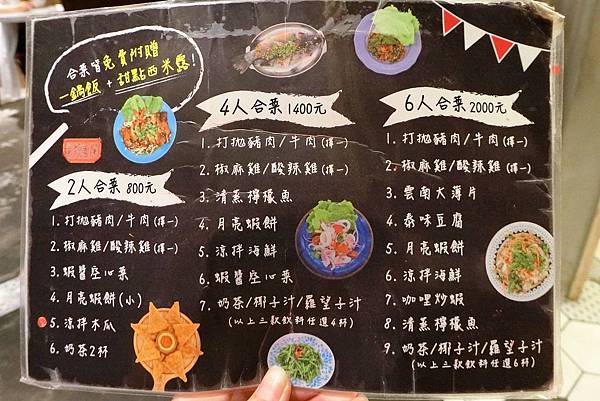 合菜皆免費附贈
一鍋飯 + 甜點西米露
2人合菜 800元
1. 打拋豬肉/牛肉(擇一)
2. 椒麻雞/酸辣雞(擇一)
3. 蝦醬空心菜
4. 月亮蝦餅(小)
5. 涼拌木瓜
6. 奶茶2杯
4人合菜 1400元
1. 打拋豬肉/牛肉(擇一)
2. 椒麻雞/酸辣雞(擇一)
3. 清蒸檸檬魚
4. 月亮蝦餅
5. 涼拌海鮮
6. 蝦醬空心菜
7. 奶茶/椰子汁/羅望子汁
(以上三款飲料任選4杯)
6人合菜 2000元
1. 打拋豬肉/牛肉(擇一)
2. 椒麻雞/酸辣雞(擇一)
3. 雲南大薄片
4. 泰味豆腐
5. 月亮蝦餅
6. 涼拌海鮮
7. 咖哩炒蝦
8. 清蒸檸檬魚
9. 奶茶/椰子汁/羅望子汁
(以上三款飲料任選6杯)